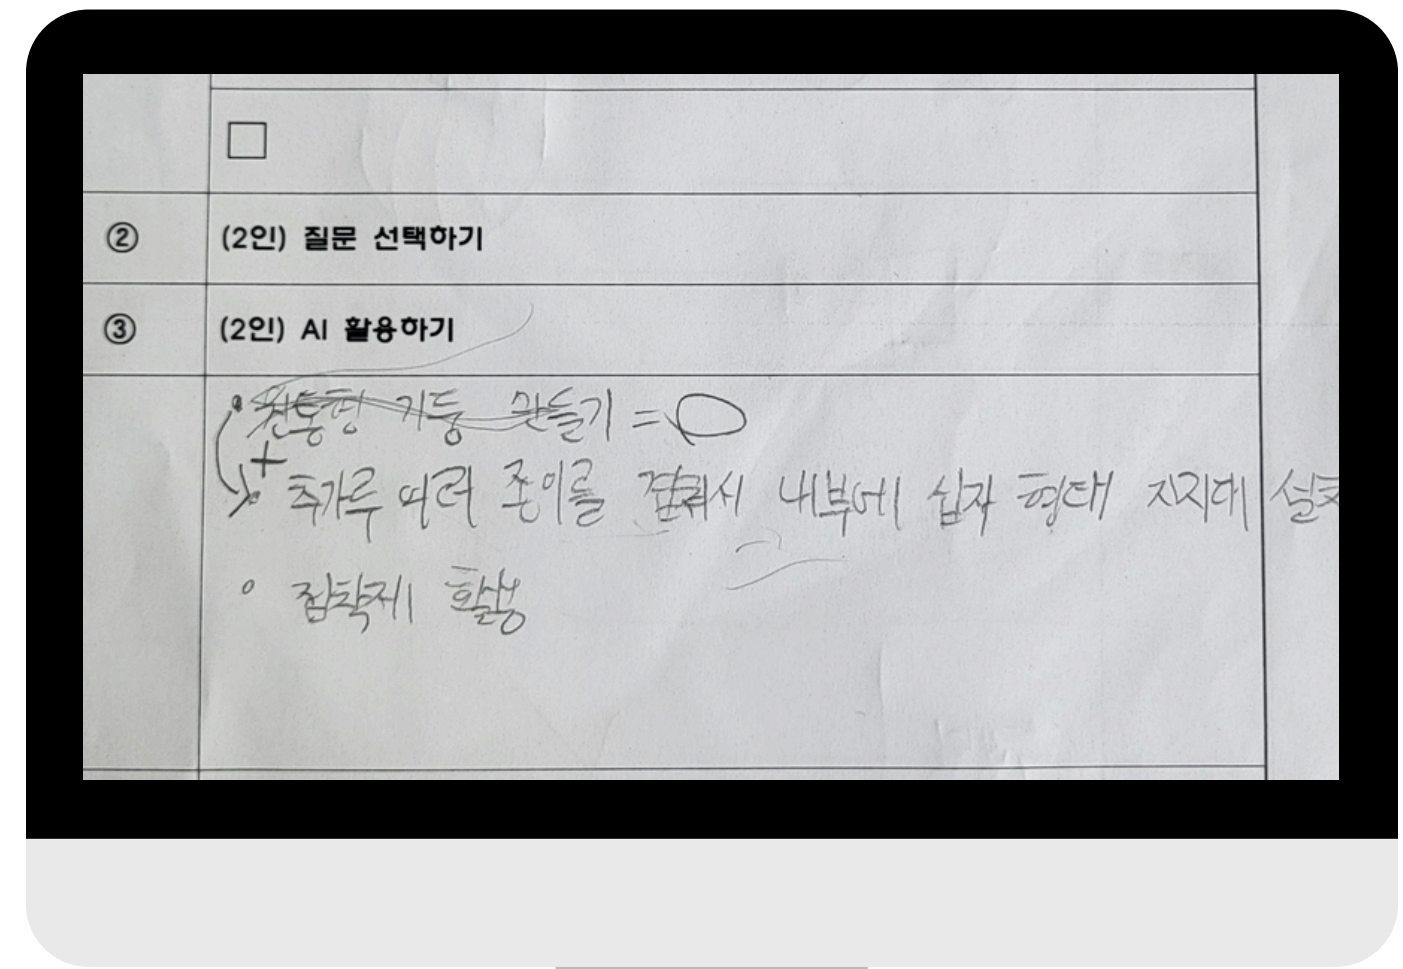 ② (2인) 질문 선택하기
③ (2인) AI 활용하기
기둥 만들기 =
+
추가루 따러 종이를 내부에 십자 형태 지지대
접착제 활용